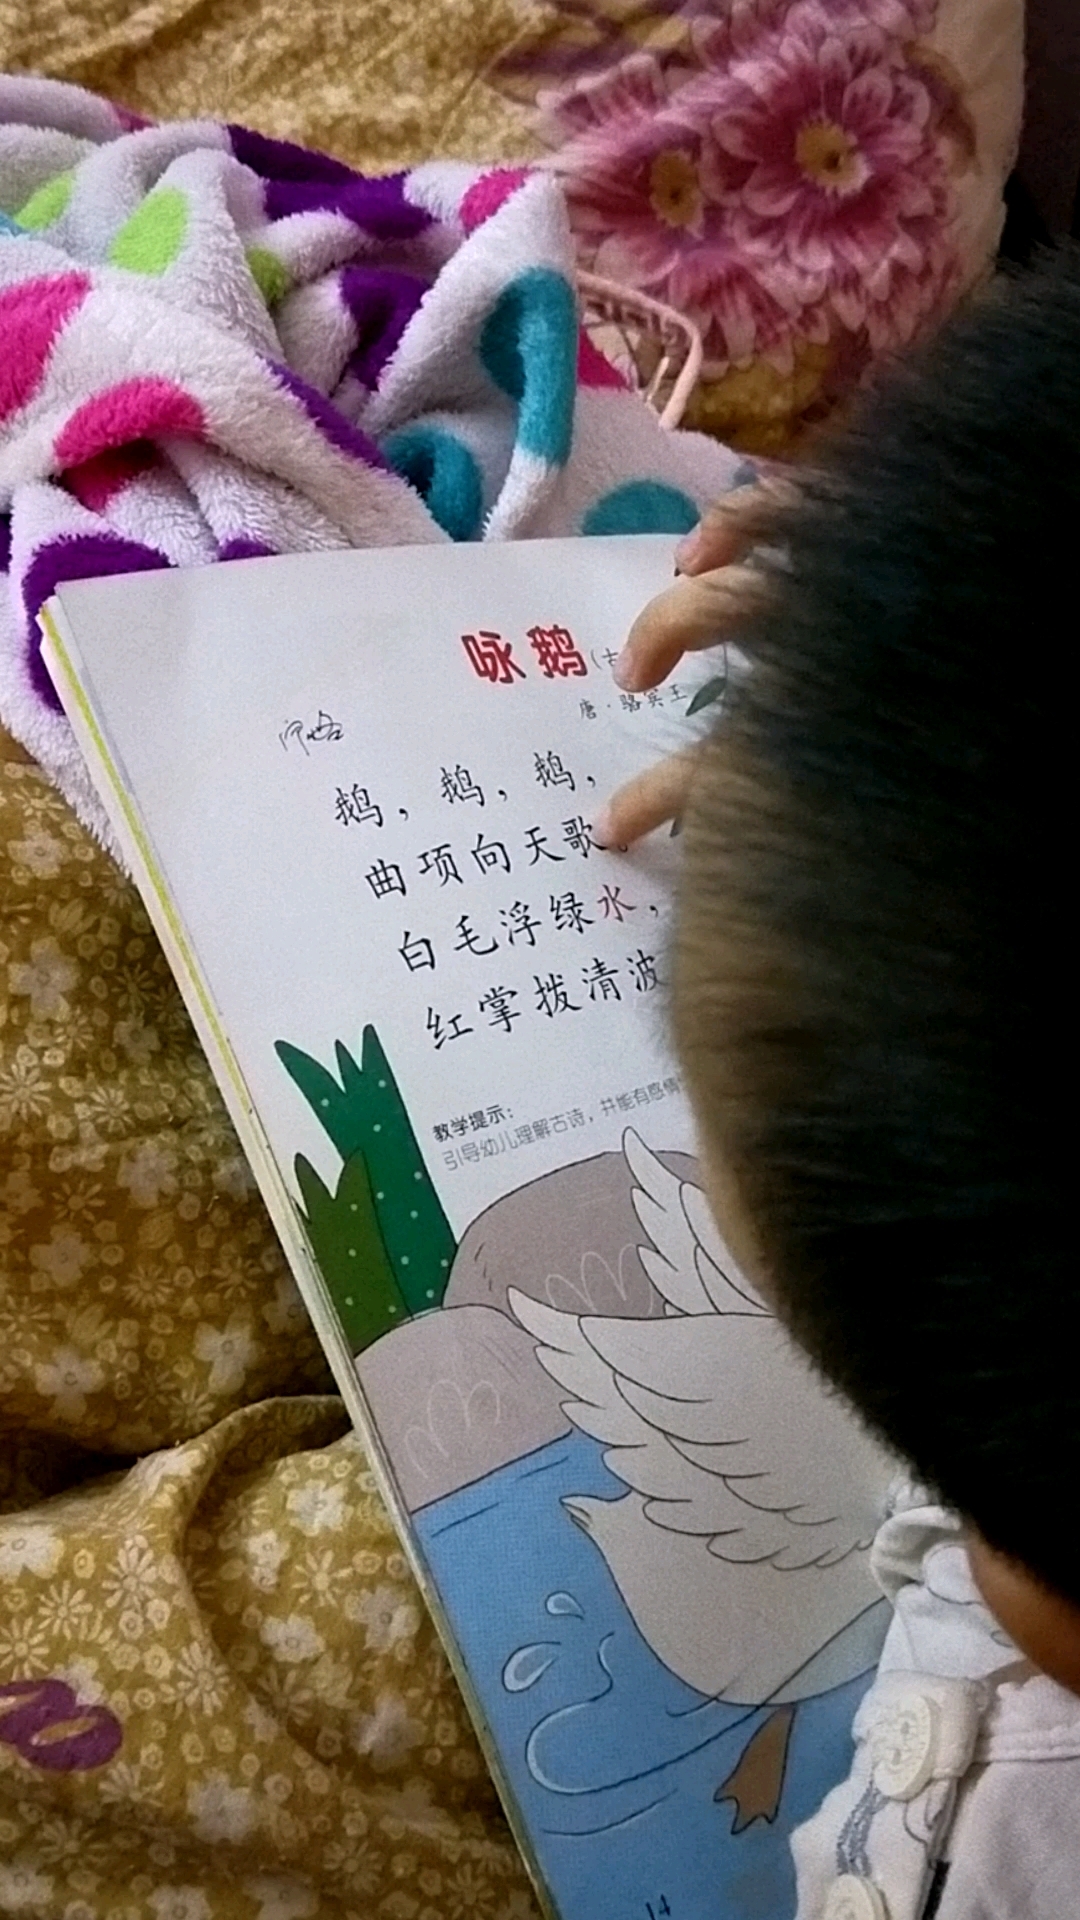 咏鹅(古
唐·骆宾王
鹅,鹅,鹅,
曲项向天歌。
白毛浮绿水,
红掌拨清波
教学提示:
引导幼儿理解古诗,并能有感情
14